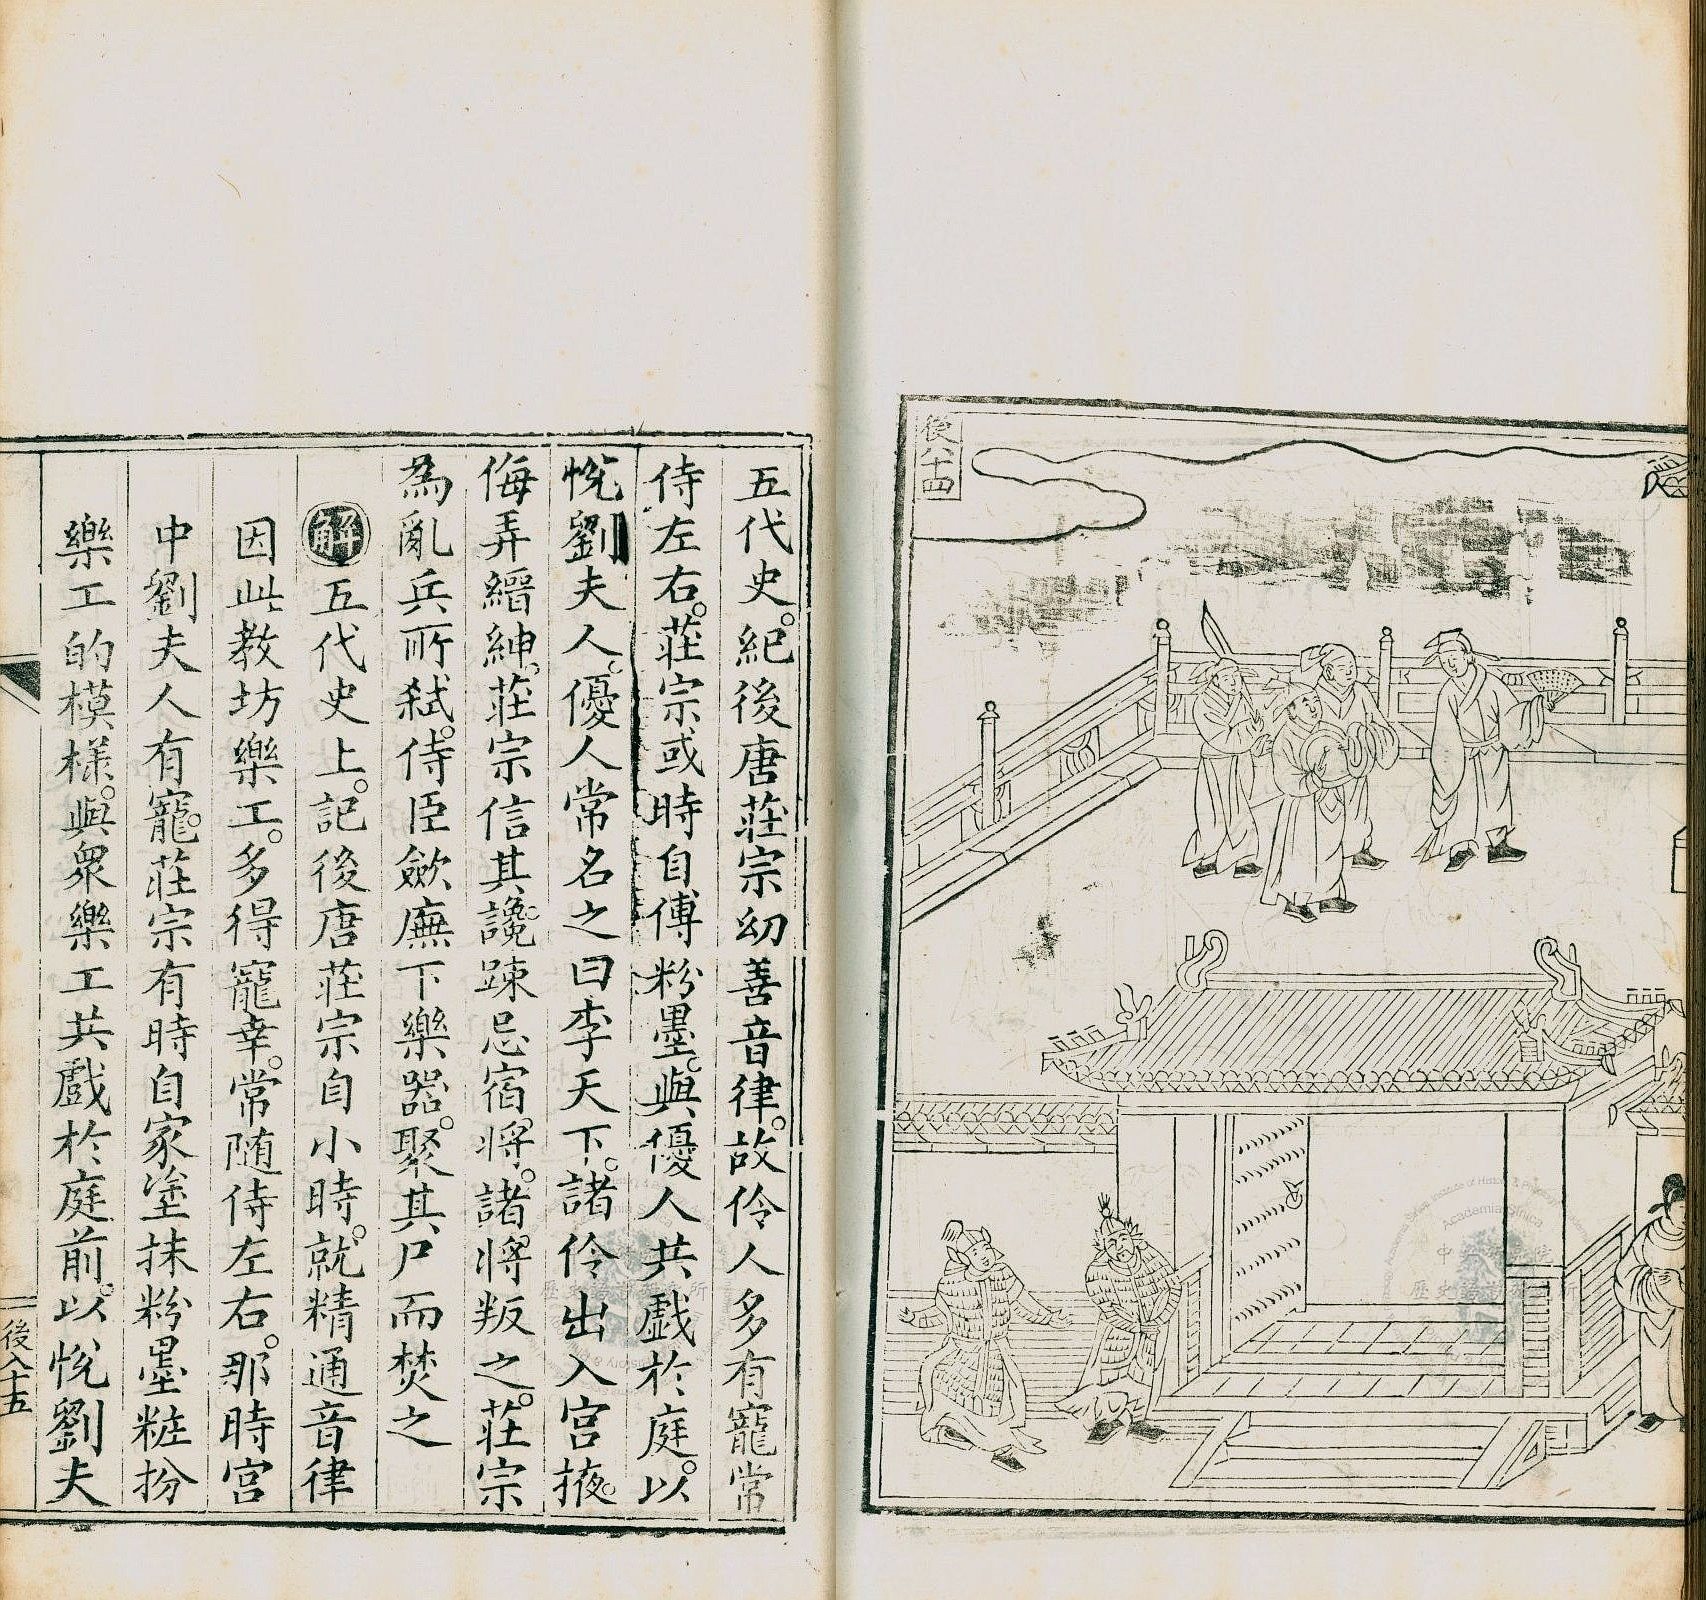 後八十四
五代史。紀後唐莊宗幼善音律。故伶人多有寵常
侍左右。莊宗或時自傅粉墨。與優人共戲於庭。以
悅劉夫人。優人常名之曰李天下。諸伶出入宮掖。
侮弄縉紳。莊宗信其讒。踈忌宿將。諸將叛之。莊宗
為亂兵所弒。侍臣歛廡下樂器。聚其尸而焚之
解五代史上。記後唐莊宗自小時。就精通音律
因此教坊樂工。多得寵幸。常随侍左右。那時宮
中劉夫人有寵。莊宗有時自家塗抹粉墨粧扮
樂工的模樣。與衆樂工共戲於庭前。以悅劉夫
後八十五
Academia Sinica
中央研究院
歷史語言研究所